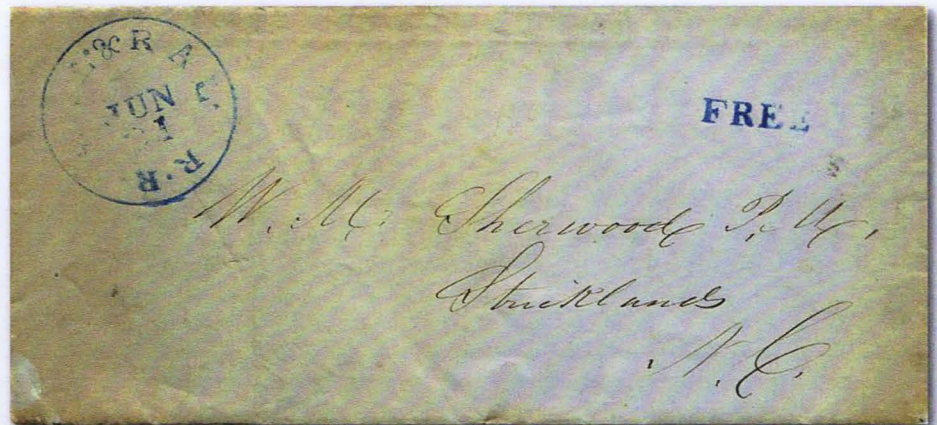 & RAL
JUN
21
R.R
FREE
W. M. Sherwood P. M.
Stricklands
N. C.